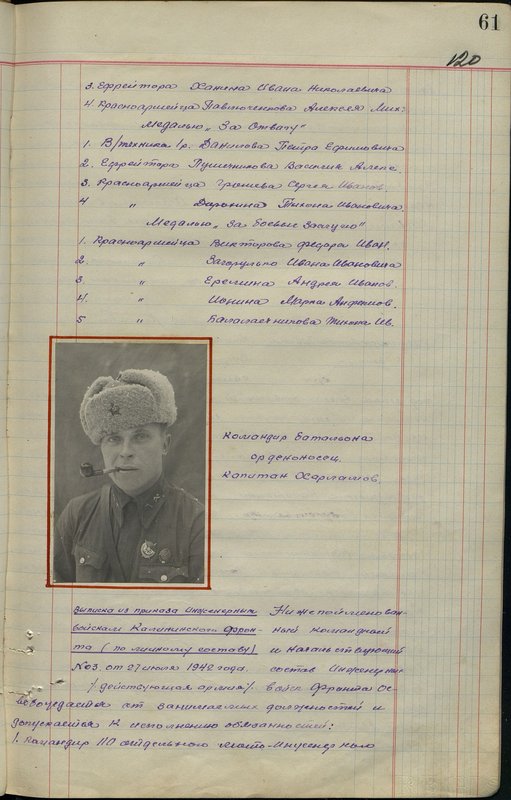 61
120
3. Ефрейтора Ханина Ивана Николаевича
4. Красноармейца Павлюченкова Алексея Мих.
Медалью „За Отвагу"
1. В/техника 1р. Данилова Петра Ефимовича
2. Ефрейтора Пушечникова Василия Алекс.
3. Красноармейца Сергея Иванов.
4 „ Дарькина Тихона Ивановича.
Медалью „За боевые Заслуги"
1. Красноармейца Викторова Федора Иван.
2. „ Загорулько Ивана Ивановича
3. „ Еремина Андрея Иванов.
4. „ Ионина Марка Анфимов.
5 „ Балалаечникова Тихона Ив.
Командир Батальона
орденоносец
Капитан Харламов.
Выписка из приказа инженерным
войскам Калининского Фрон-
та (по личному составу)
№03. от 27 июля 1942 года.
/действующая армия/.
Нижепоименован-
ный командный
и начальствующий
состав Инженерных
войск Фронта ос-
вобождается от занимаемых должностей и
допускается к исполнению обязанностей:
1. Командир 110 отдельного мото-инженерного